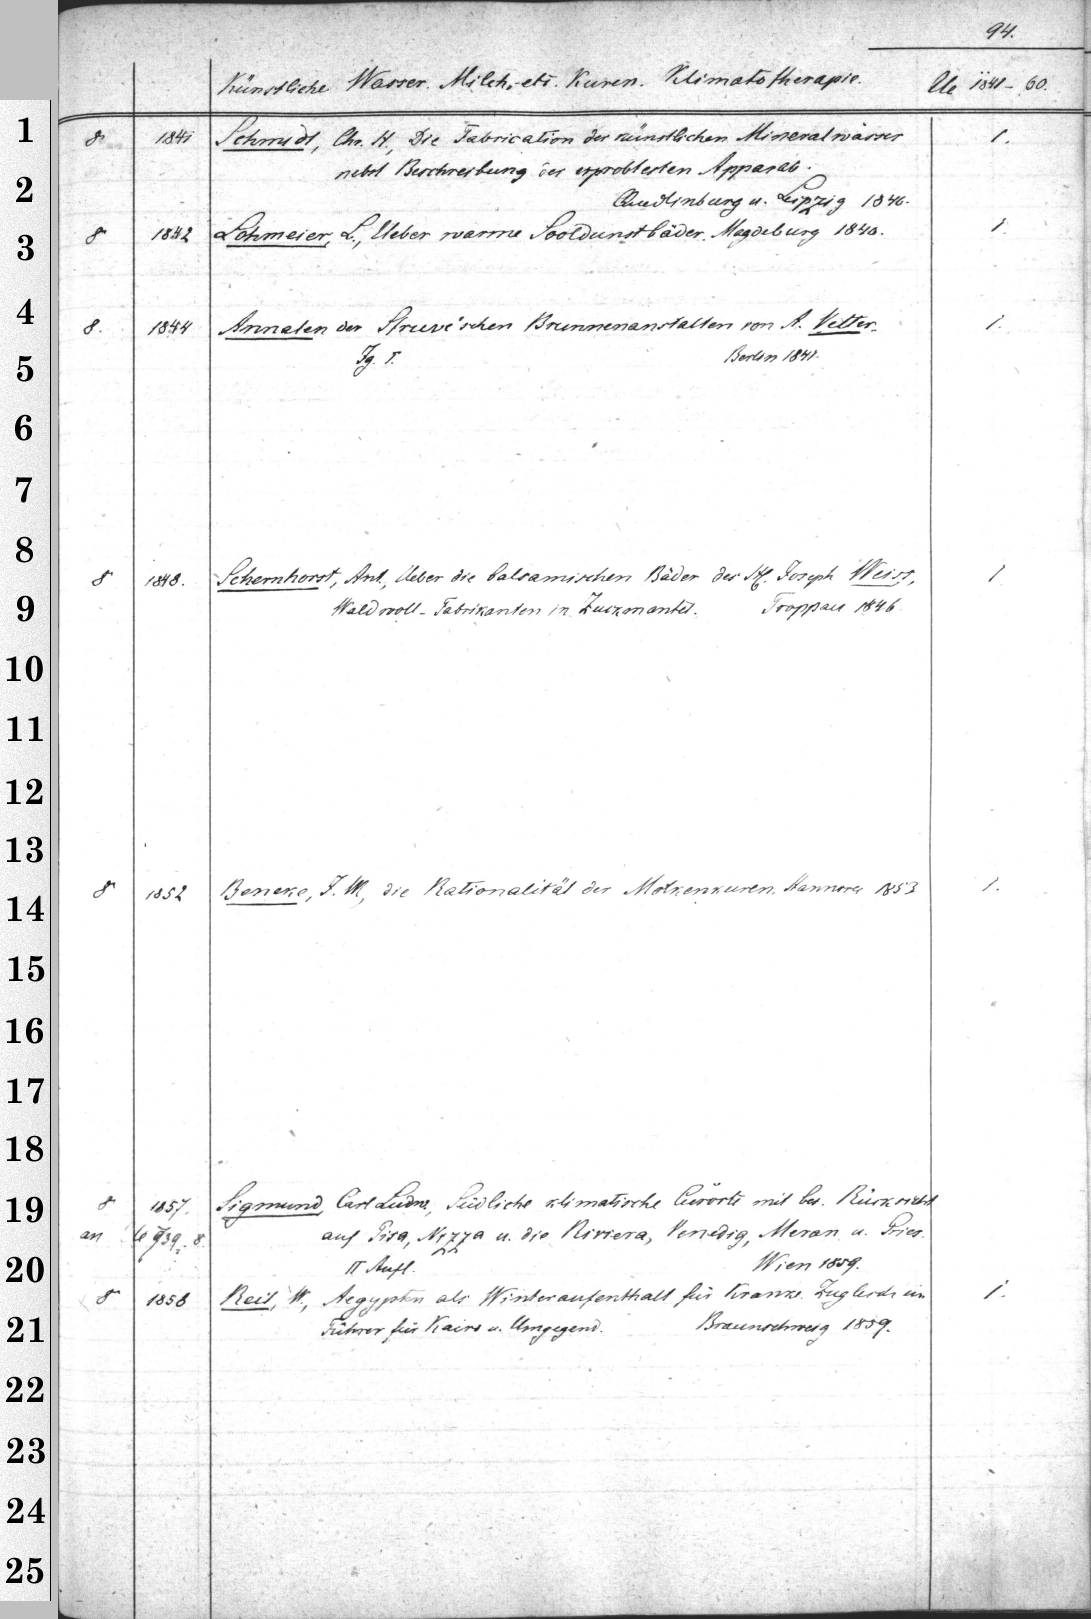 94.
Künstliche Wasser. Milch- etc. Kuren. Klimatotherapie. Ue 1841-60.
1
8 1841 Schmidt, Chr. H., Die Fabrication der künstlichen Mineralwässer 1.
nebst Beschreibung der erprobtesten Apparate.
2
Quedlinburg u. Leipzig 1840.
3
8 1842 Lohmeier, L., Ueber warme Sooldunstbäder. Magdeburg 1840. 1.
4
8. 1844 Annalen der Struve'schen Brunnenanstalten von A. Vetter. 1.
5
Jg. I. Berlin 1841.
6
7
8
8 1848. Schernhorst, Ant., Ueber die balsamischen Bäder des H. Joseph Weiss, 1
9
Waldwoll-Fabrikanten in Zuckmantel. Troppau 1846.
10
11
12
13
8 1852 Beneke, F. W., die Rationalität der Molkenkuren. Hannover 1853 1.
14
15
16
17
18
19
8 1857. Sigmund, Carl Ludw., Südliche klimatische Curorte mit bes. Rücksicht
an 8. auf Pisa, Nizza u. die Riviera, Venedig, Meran u. Gries.
20
II Aufl. Wien 1859.
8 1858 Reil, W., Aegypten als Winteraufenthalt für Kranke. Zugleich ein 1.
21
Führer für Kairo u. Umgegend. Braunschweig 1859.
22
23
24
25